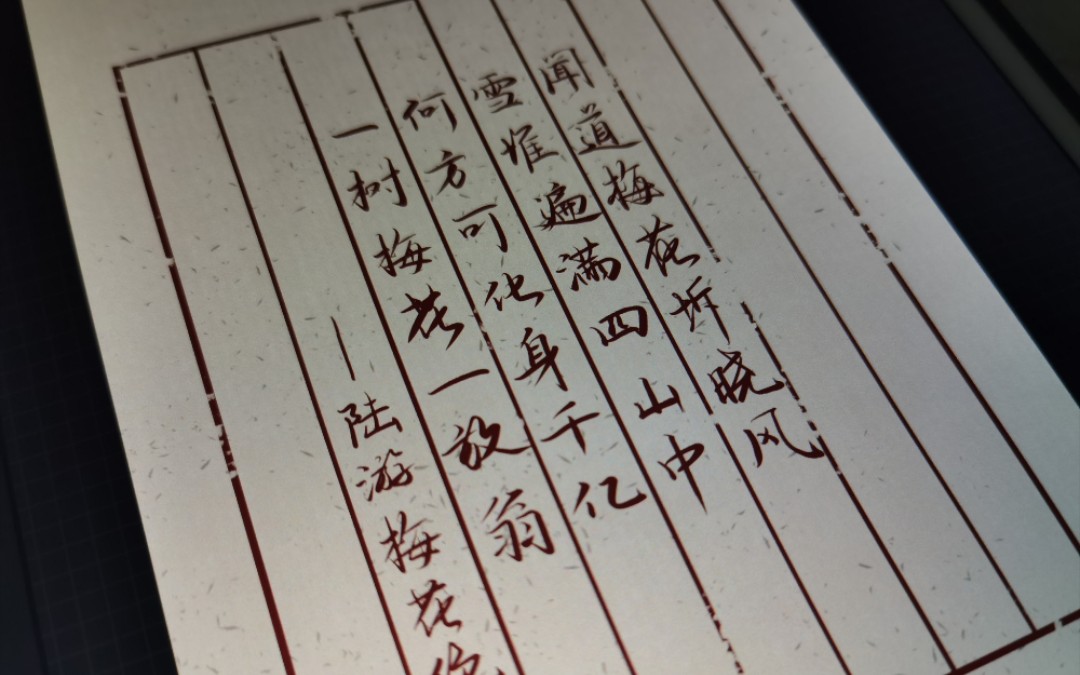 闻道梅花坼晓风
雪堆遍满四山中
何方可化身千亿
一树梅花一放翁
——陆游梅花